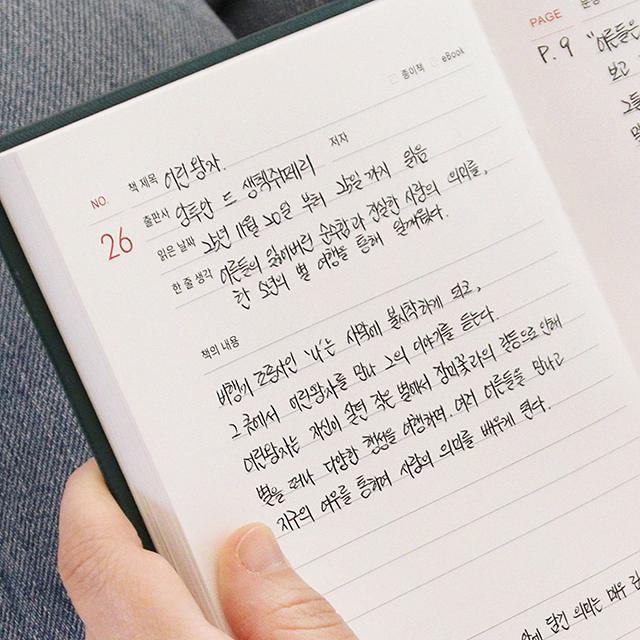 종이책 eBook
NO. 책 제목 어린왕자. 저자
26 출판서 앙투안 드 생텍쥐페리
읽은 날짜 24년 11월 20일 부터 25일 까지 읽음
한 줄 생각 어른들의 잃어버린 순수함과 진실한 사랑의 의미를,
한 소년의 별 여행을 통해 일깨웠다.
책의 내용
비행기 조종사인 '나'는 사막에 불시착하게 되고,
그 곳에서 어린왕자를 만나 그의 이야기를 듣는다.
어린왕자는 자신이 살던 작은 별에서 장미꽃과의 갈등으로 인해
별을 떠나 다양한 행성을 여행하며, 여러 어른들을 만나고
지구의 여우를 통하여 사랑의 의미를 배우게 된다.
담긴 의미는 매우
PAGE
P. 9 "어른들은
보고